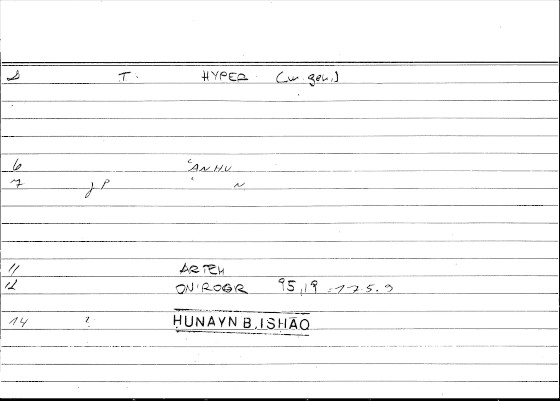 T. HYPER (w. gen.)
6 ʿANHU
7
11 ARTEM
ONIROGR 95,19 = 175.9
14 ? HUNAYN B. ISHAQ